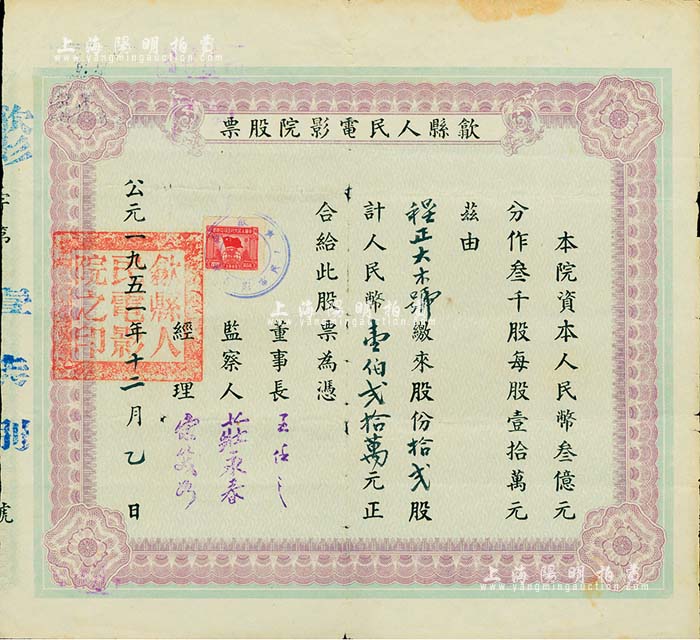 上海陽明拍賣
www.yangmingauction.com
歙縣人民電影院股票
本院資本人民幣叁億元
分作叁千股每股壹拾萬元
茲由
程正大木號繳來股份拾弍股
計人民幣壹伯弍拾萬元正
合給此股票為憑
董事長
監察人 永春
經理
公元一九五一年十二月乙日
歙縣人民電影院之印
字第
號
上海陽明拍賣
www.yangmingauction.com
上海陽明拍賣
www.yangmingauction.com